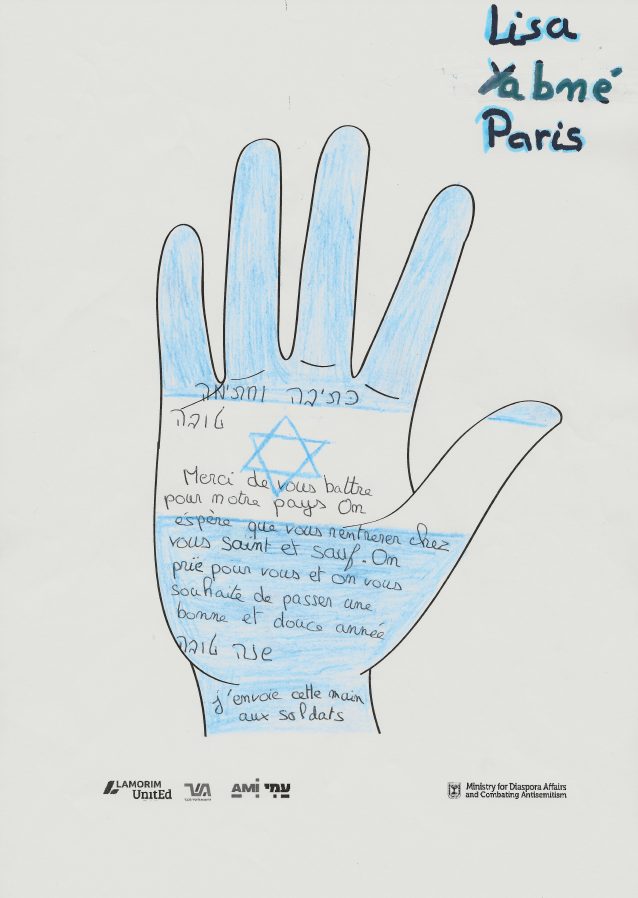 Lisa
Yabné
Paris
כתיבה וחתימה
טובה
Merci de vous battre
pour notre pays On
éspère que vous rentrerer chez
vous saint et sauf. On
prie pour vous et on vous
souhaite de passer une
bonne et douce année
שנה טובה
j'envoie cette main
aux soldats
LAMORIM
UnitEd
AMI עמי
Ministry for Diaspora Affairs
and Combating Antisemitism